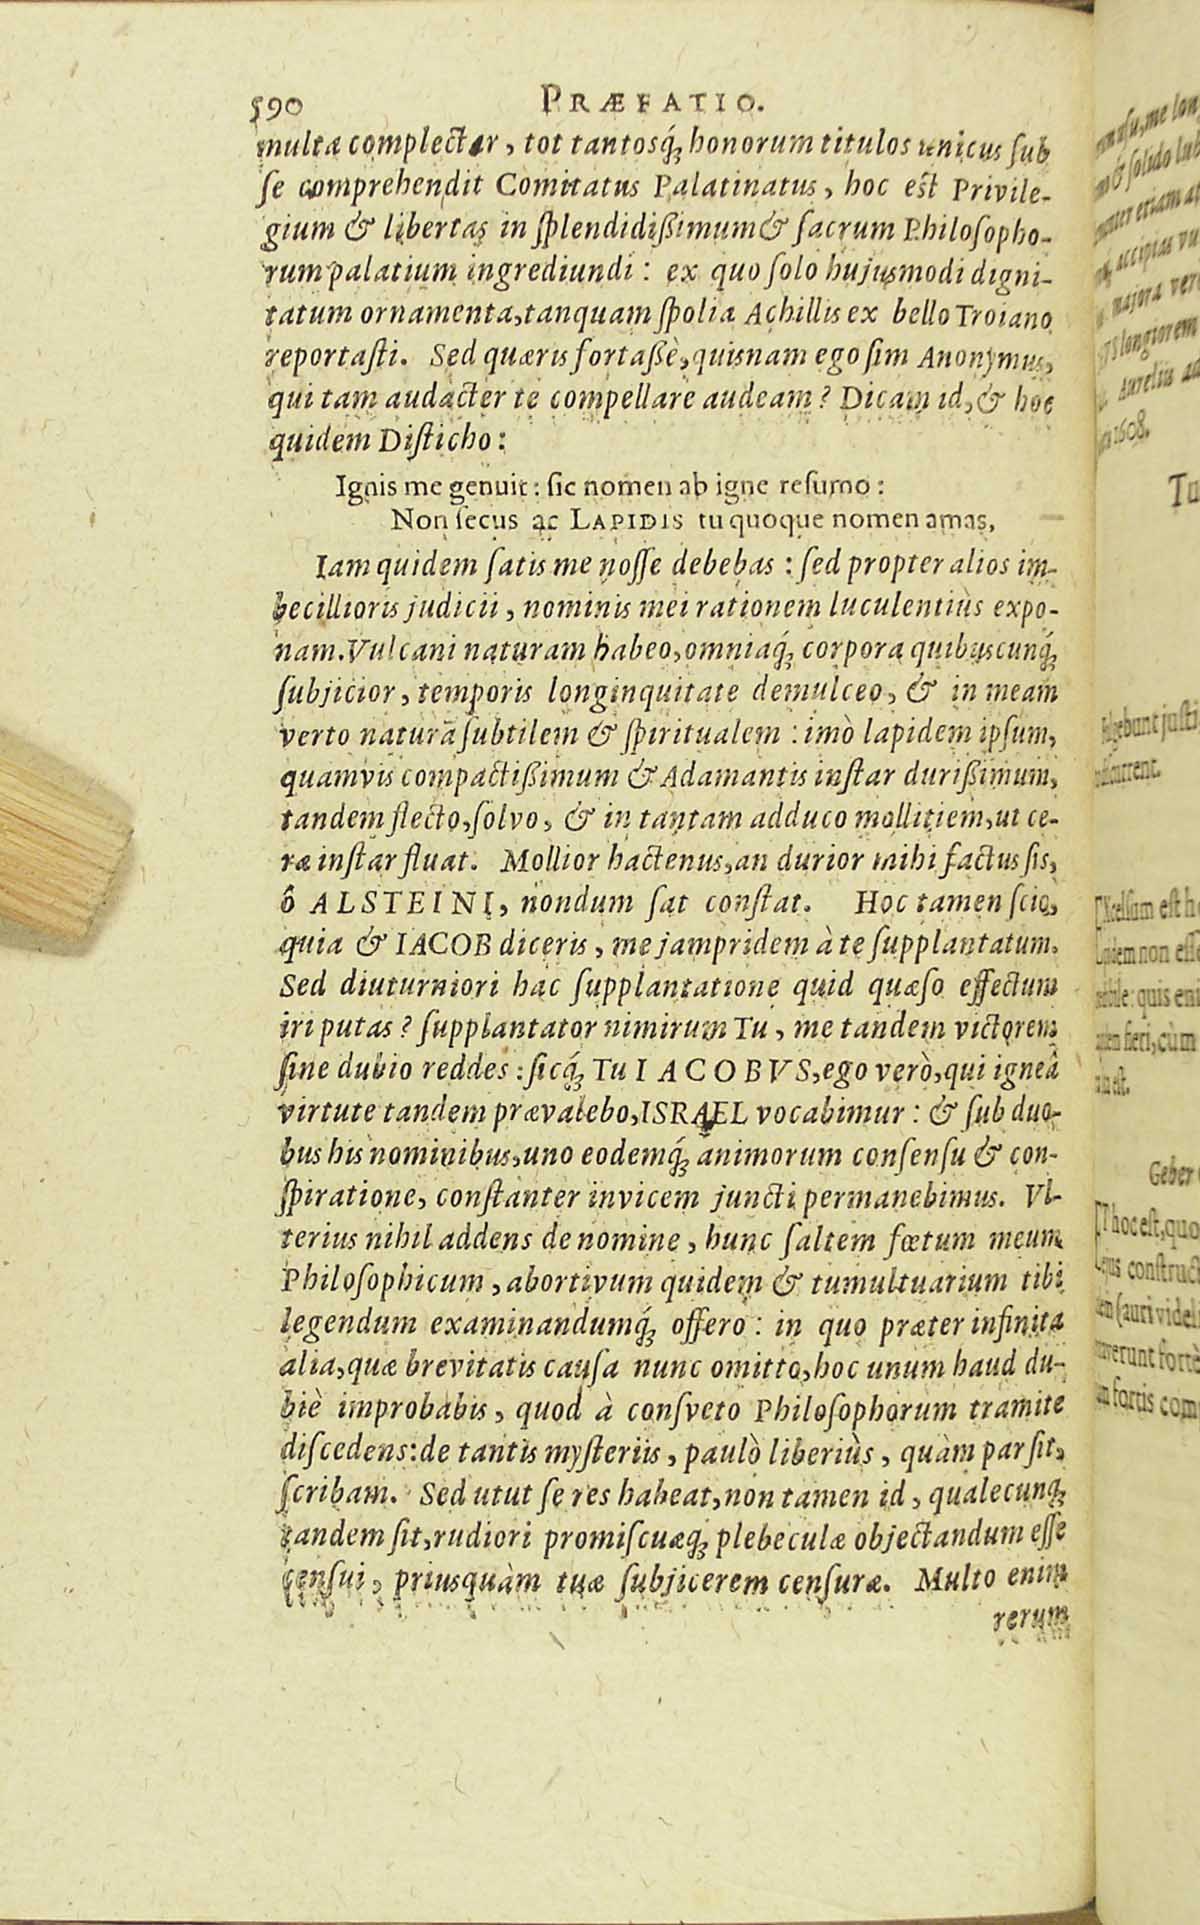 590 PRÆFATIO.
multa complectar, tot tantosq́; honorum titulos unicus sub
se comprehendit Comitatus Palatinatus, hoc est Privile-
gium & libertas in splendidißimum & sacrum Philosopho-
rum palatium ingrediundi: ex quo solo hujusmodi digni-
tatum ornamenta, tanquam spolia Achillis ex bello Troiano
reportasti. Sed quæris fortaßè, quisnam ego sim Anonymus,
qui tam audacter te compellare audeam? Dicam id, & hoc
quidem Disticho:
Ignis me genuit: sic nomen ab igne resumo:
Non secus ac LAPIDIS tu quoque nomen amas,
Iam quidem satis me nosse debebas: sed propter alios im-
becillioris judicii, nominis mei rationem luculentiùs expo-
nam. Vulcani naturam habeo, omniaq́; corpora quibuscunq́;
subjicior, temporis longinquitate demulceo, & in meam
verto naturā subtilem & spiritualem: imò lapidem ipsum,
quamvis compactißimum & Adamantis instar durißimum,
tandem flecto, solvo, & in tantam adduco mollitiem, ut ce-
ræ instar fluat. Mollior hactenus, an durior mihi factus sis,
ô ALSTEINI, nondum sat constat. Hoc tamen scio,
quia & IACOB diceris, me jampridem à te supplantatum.
Sed diuturniori hac supplantatione quid quæso effectum
iri putas? supplantator nimirum Tu, me tandem victorem
sine dubio reddes: sicq́; Tu IACOBVS, ego verò, qui igneâ
virtute tandem prævalebo, ISRAEL vocabimur: & sub duo-
bus his nominibus, uno eodemq́; animorum consensu & con-
spiratione, constanter invicem juncti permanebimus. Vl-
terius nihil addens de nomine, hunc saltem fœtum meum
Philosophicum, abortivum quidem & tumultuarium tibi
legendum examinandumq́; offero: in quo præter infinita
alia, quæ brevitatis causa nunc omitto, hoc unum haud du-
biè improbabis, quod à consveto Philosophorum tramite
discedens: de tantis mysteriis, paulò liberiùs, quàm par sit,
scribam. Sed utut se res habeat, non tamen id, qualecunq;
tandem sit, rudiori promiscuæq́; plebeculæ objectandum esse
censui, priusquàm tuæ subjicerem censuræ. Multo enim
rerum
me lon
& solido
etiam
accipias
majora
longiorem
Aurelia
1608.
Tu
justi
est
non esse
quis eni
fieri, cùm
est.
Geber
hoc est, quo
fortis